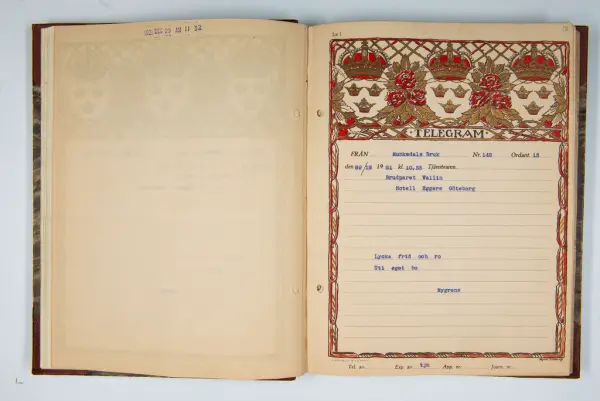 Lx 1
TELEGRAM
FRÅN Munkedals Bruk Nr. 148 Ordant. 18
den 29/12 19 21 kl. 10,55 Tjänsteanm.
Brudparet Wallin
Hotell Eggers Göteborg
Lycka frid och ro
Uti eget bo
Nygrens
Tel. nr. Exp. av App. nr. Journ. nr.